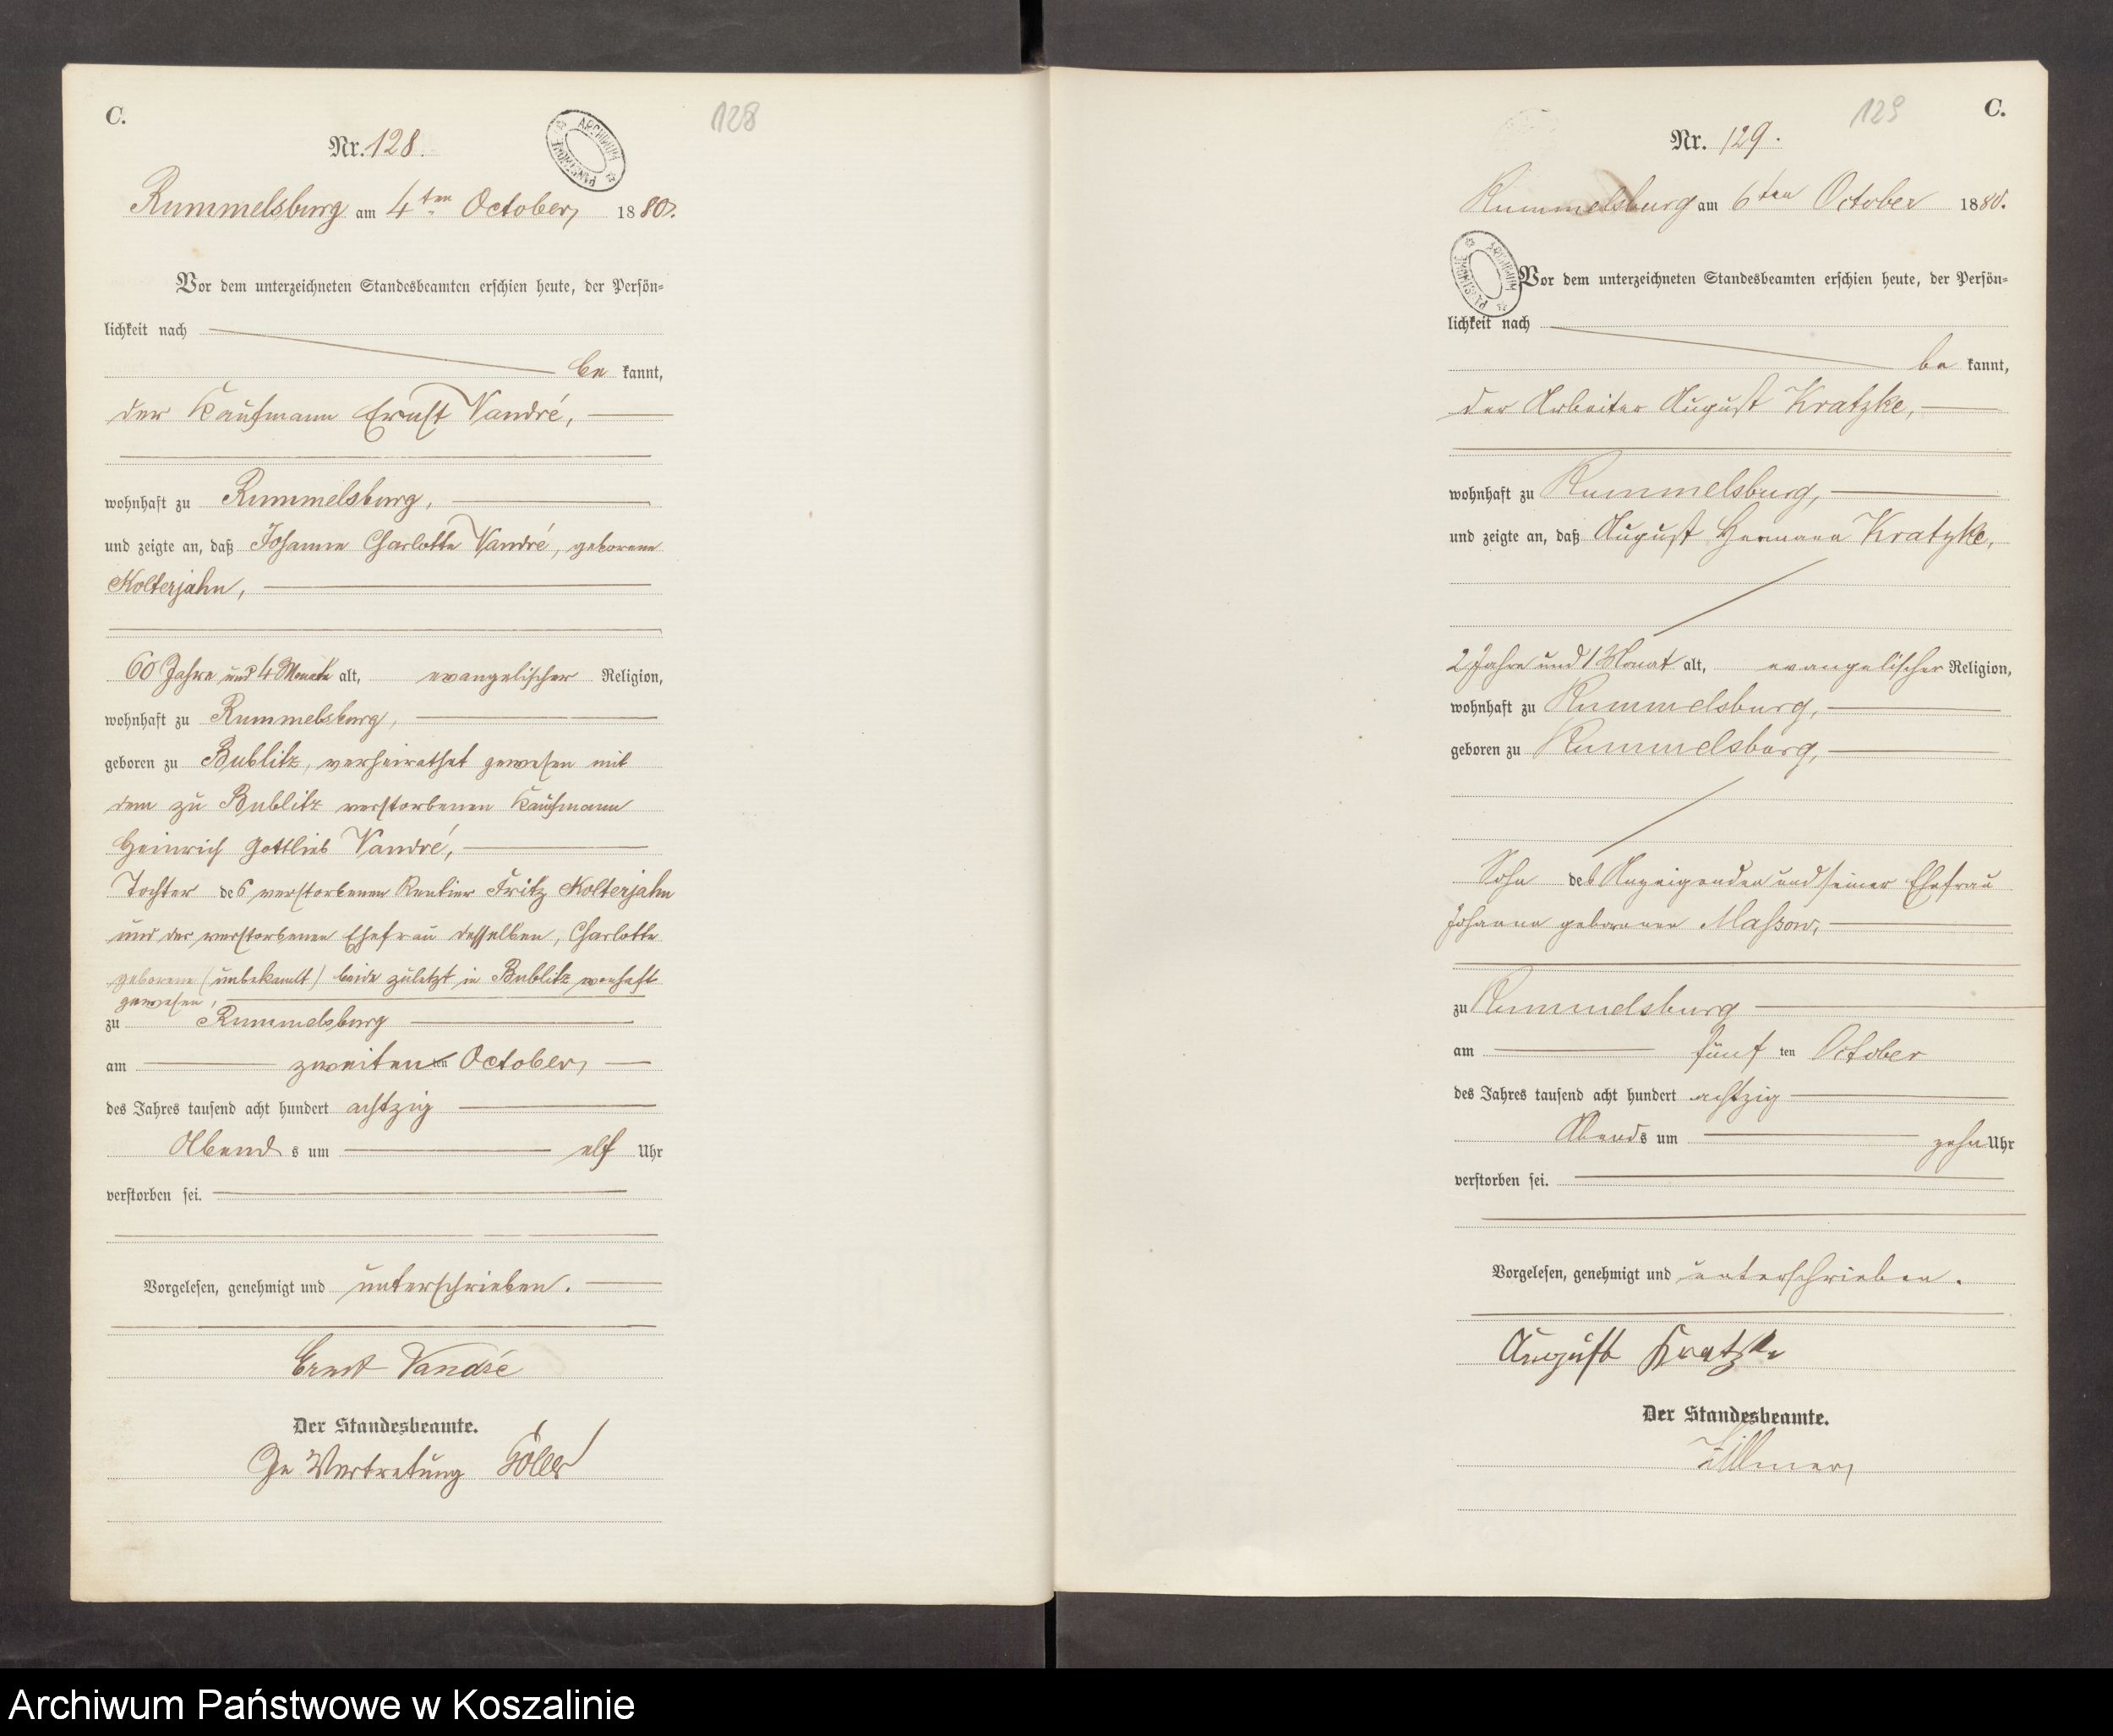 C.
128
Nr. 128.
ARCHIWUM PAŃSTWOWE
Rummelsburg am 4ten October, 1880.
Vor dem unterzeichneten Standesbeamten erschien heute, der Persön-
lichkeit nach
be kannt,
der Kaufmann Ernst Vandré,
wohnhaft zu Rummelsburg,
und zeigte an, daß Johanne Charlotte Vandré, geborene
Nolterjahn,
60 Jahre und 4 Monate alt, evangelischer Religion,
wohnhaft zu Rummelsburg,
geboren zu Bublitz, verheirathet gewesen mit
dem zu Bublitz verstorbenen Kaufmann
Heinrich Gottlieb Vandré,
Tochter des verstorbenen Rentier Fritz Nolterjahn
und der verstorbenen Ehefrau desselben, Charlotte
geborene (unbekannt) beide zuletzt in Bublitz wonhaft
gewesen,
zu Rummelsburg
am zweiten ten October,
des Jahres tausend acht hundert achtzig
Abend s um elf Uhr
verstorben sei.
Vorgelesen, genehmigt und unterschrieben.
Ernst Vandré
Der Standesbeamte.
In Vertretung
129
C.
Nr. 129.
Rummelsburg am 6ten October 1880.
ARCHIWUM PAŃSTWOWE
Vor dem unterzeichneten Standesbeamten erschien heute, der Persön-
lichkeit nach
be kannt,
der Arbeiter August Kratzke,
wohnhaft zu Rummelsburg,
und zeigte an, daß August Hermann Kratzke,
2 Jahre und 1 Monat alt, evangelischer Religion,
wohnhaft zu Rummelsburg,
geboren zu Rummelsburg,
Sohn des Anzeigenden und seiner Ehefrau
Johanne geborenen Massow,
zu Rummelsburg
am fünf ten October
des Jahres tausend acht hundert achtzig
Abends um zehn Uhr
verstorben sei.
Vorgelesen, genehmigt und unterschrieben.
August Kratzke
Der Standesbeamte.
Zillmer,
Archiwum Państwowe w Koszalinie